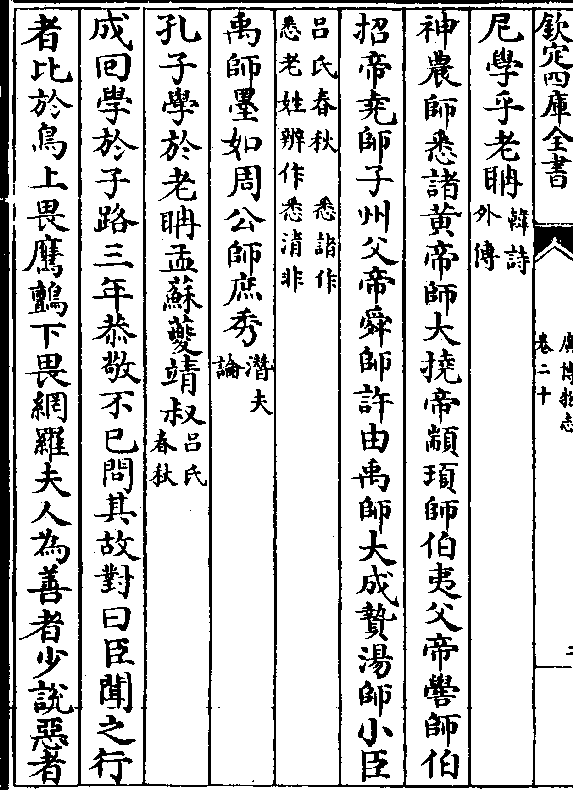 欽定四庫全書
廣博物志
卷二十
尼學乎老聃韓詩外傳
神農師悉諸黄帝師大撓帝顓頊師伯夷父帝嚳師伯
招帝堯師子州父帝舜師許由禹師大成贄湯師小臣
吕氏春秋 悉諸作
悉老姓辨作悉清非
禹師墨如周公師庶秀潛夫論
孔子學於老聃孟蘇夔靖叔吕氏春秋
成回學於子路三年恭敬不已問其故對曰臣聞之行
者比於鳥上畏鷹鸇下畏網羅夫人為善者少說惡者